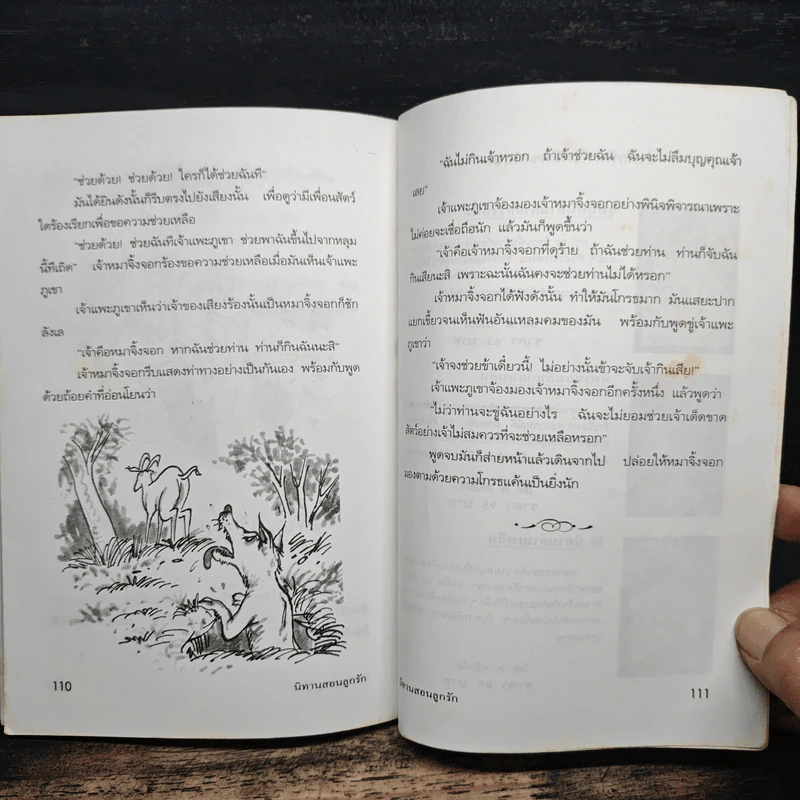 "ช่วยด้วย! ช่วยด้วย! ใครก็ได้ช่วยฉันที"
มันได้ยินดังนั้นก็รีบตรงไปยังเสียงนั้น เพื่อดูว่ามีเพื่อนสัตว์
ใดร้องเรียกเพื่อขอความช่วยเหลือ
"ช่วยด้วย! ช่วยฉันทีเจ้าแพะภูเขา ช่วยพาฉันขึ้นไปจากหลุม
นี้ทีเถิด" เจ้าหมาจิ้งจอกร้องขอความช่วยเหลือเมื่อมันเห็นเจ้าแพะ
ภูเขา
เจ้าแพะภูเขาเห็นว่าเจ้าของเสียงร้องนั้นเป็นหมาจิ้งจอกก็ชัก
ลังเล
"เจ้าคือหมาจิ้งจอก หากฉันช่วยท่าน ท่านก็กินฉันนะสิ"
เจ้าหมาจิ้งจอกรีบแสดงท่าทางอย่างเป็นกันเอง พร้อมกับพูด
ด้วยถ้อยคำที่อ่อนโยนว่า
110
นิทานสอนลูกรัก
"ฉันไม่กินเจ้าหรอก ถ้าเจ้าช่วยฉัน ฉันจะไม่ลืมบุญคุณเจ้า
เลย"
เจ้าแพะภูเขาจ้องมองเจ้าหมาจิ้งจอกอย่างพินิจพิจารณาเพราะ
ไม่ค่อยจะเชื่อถือนัก แล้วมันก็พูดขึ้นว่า
"เจ้าคือเจ้าหมาจิ้งจอกที่ดุร้าย ถ้าฉันช่วยท่าน ท่านก็จับฉัน
กินเสียนะสิ เพราะฉะนั้นฉันคงจะช่วยท่านไม่ได้หรอก"
เจ้าหมาจิ้งจอกได้ฟังดังนั้น ทำให้มันโกรธมาก มันแสยะปาก
แยกเขี้ยวจนเห็นฟันอันแหลมคมของมัน พร้อมกับพูดขู่เจ้าแพะ
ภูเขาว่า
"เจ้าจงช่วยข้าเดี๋ยวนี้! ไม่อย่างนั้นข้าจะจับเจ้ากินเสีย!"
เจ้าแพะภูเขาจ้องมองเจ้าหมาจิ้งจอกอีกครั้งหนึ่ง แล้วพูดว่า
"ไม่ว่าท่านจะขู่ฉันอย่างไร ฉันจะไม่ยอมช่วยเจ้าเด็ดขาด
สัตว์อย่างเจ้าไม่สมควรที่จะช่วยเหลือหรอก"
พูดจบมันก็ส่ายหน้าแล้วเดินจากไป ปล่อยให้หมาจิ้งจอก
มองตามด้วยความโกรธแค้นเป็นยิ่งนัก
นิทานสอนลูกรัก
111